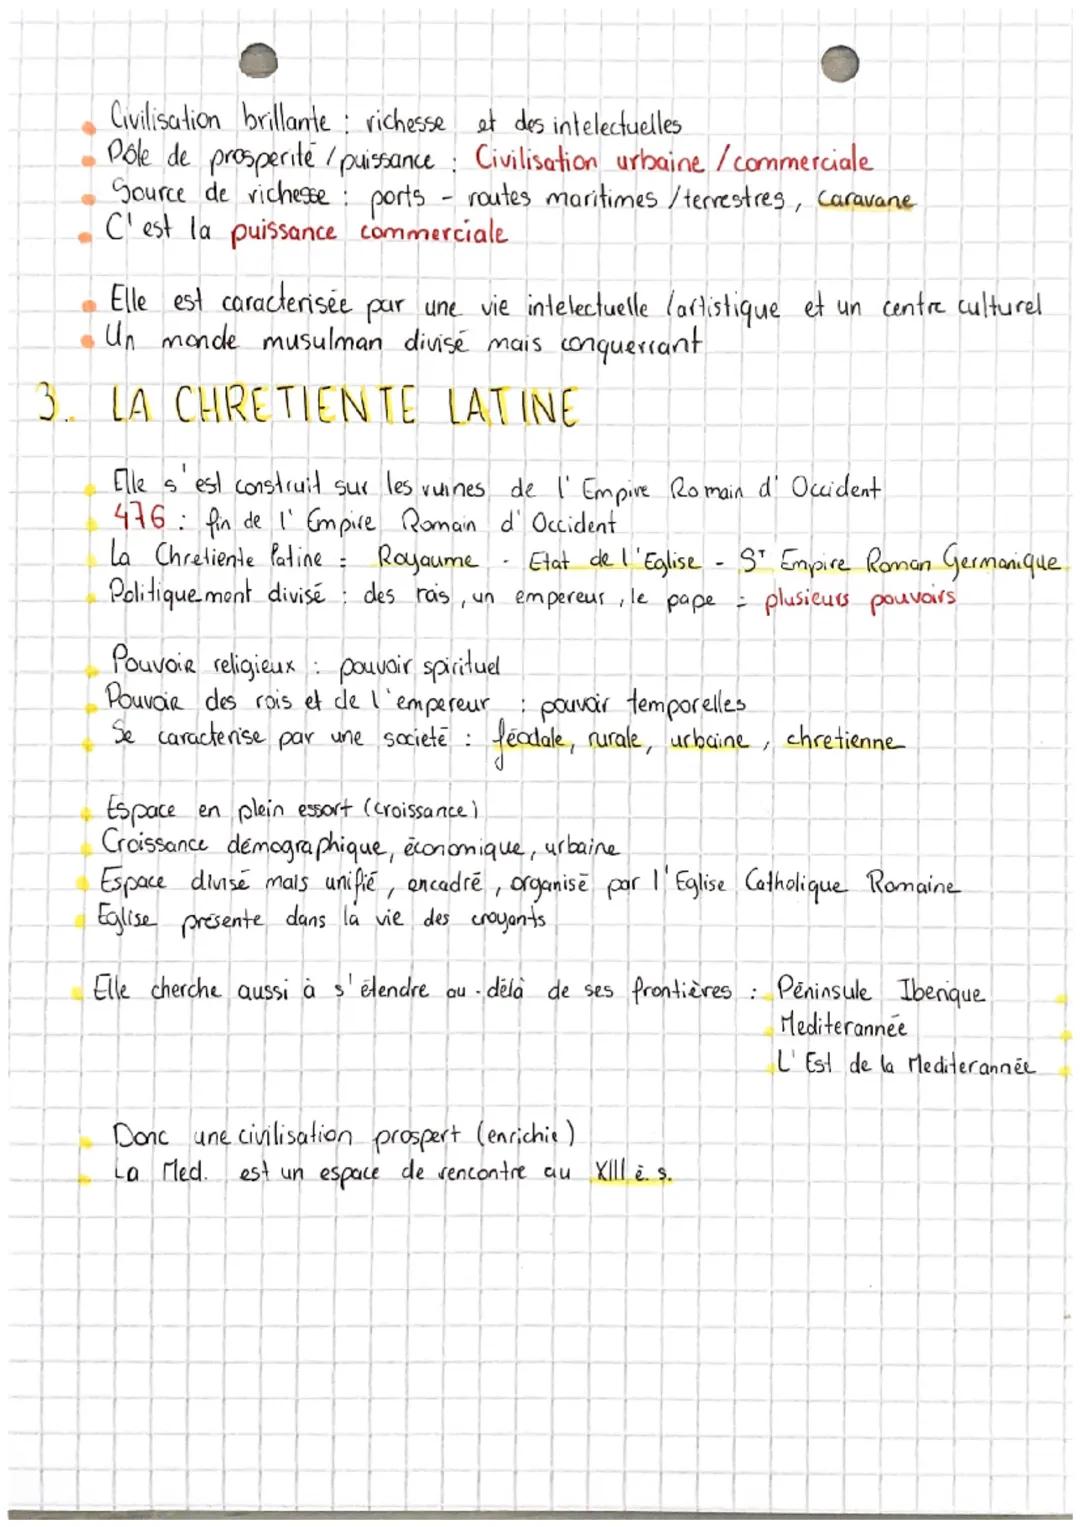 Civilisation brillante : richesse et des intelectuelles
Pôle de prosperité / puissance : Civilisation urbaine / commerciale
Source de richesse : ports - routes maritimes / terrestres, caravane
C'est la puissance commerciale
Elle est caracterisée par une vie intelectuelle /artistique et un centre culturel
Un monde musulman divisé mais conquerrant
3. LA CHRETIENTE LATINE
Elle s'est construit sur les ruines de l'Empire Romain d'Occident
476 : fin de l'Empire Romain d'Occident
La Chretiente latine = Royaume - Etat de l'Eglise - ST Empire Roman Germanique
Politiquement divisé : des rois, un empereur, le pape = plusieurs pouvoirs
Pouvoir religieux : pouvoir spirituel
Pouvoir des rois et de l'empereur : pouvoir temporelles
Se caracterise par une societé : féodale, rurale, urbaine, chretienne
Espace en plein essort (croissance)
Croissance démographique, économique, urbaine
Espace divisé mais unifié, encadré, organisé par l'Eglise Catholique Romaine
Eglise présente dans la vie des croyants
Elle cherche aussi à s'étendre au-délà de ses frontières : Péninsule Iberique
Mediterannée
L'Est de la Mediterannée
Donc une civilisation prospert (enrichie)
La Med. est un espace de rencontre au XIII è. s.